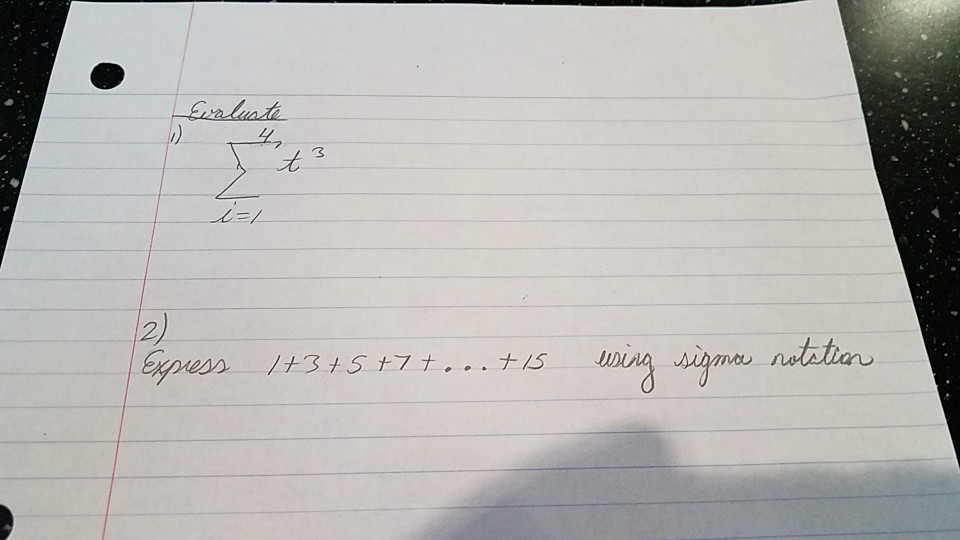 Evaluate
1) 4
∑ t³
i=1
2)
Express 1+3+5+7+...+15 using sigma notation